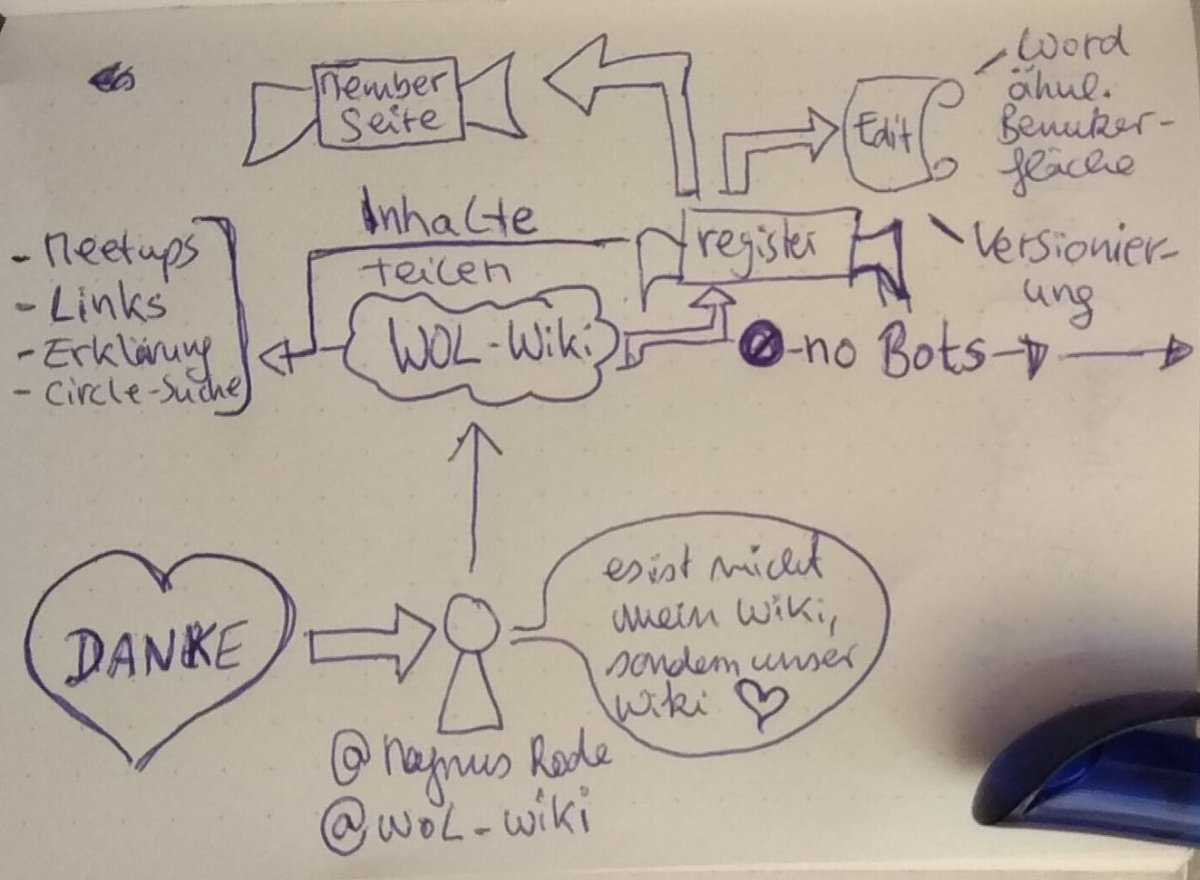 Member
Seite
Edit
Word
ähnl.
Benutzer-
fläche
Versionier-
ung
Inhalte
teilen
register
- Meetups
- Links
- Erklärung
- Circle-Suche
WOL-Wiki
Ø-no Bots
DANKE
es ist nicht
mein Wiki,
sondern unser
Wiki ♡
@Magnus Rode
@WOL-Wiki